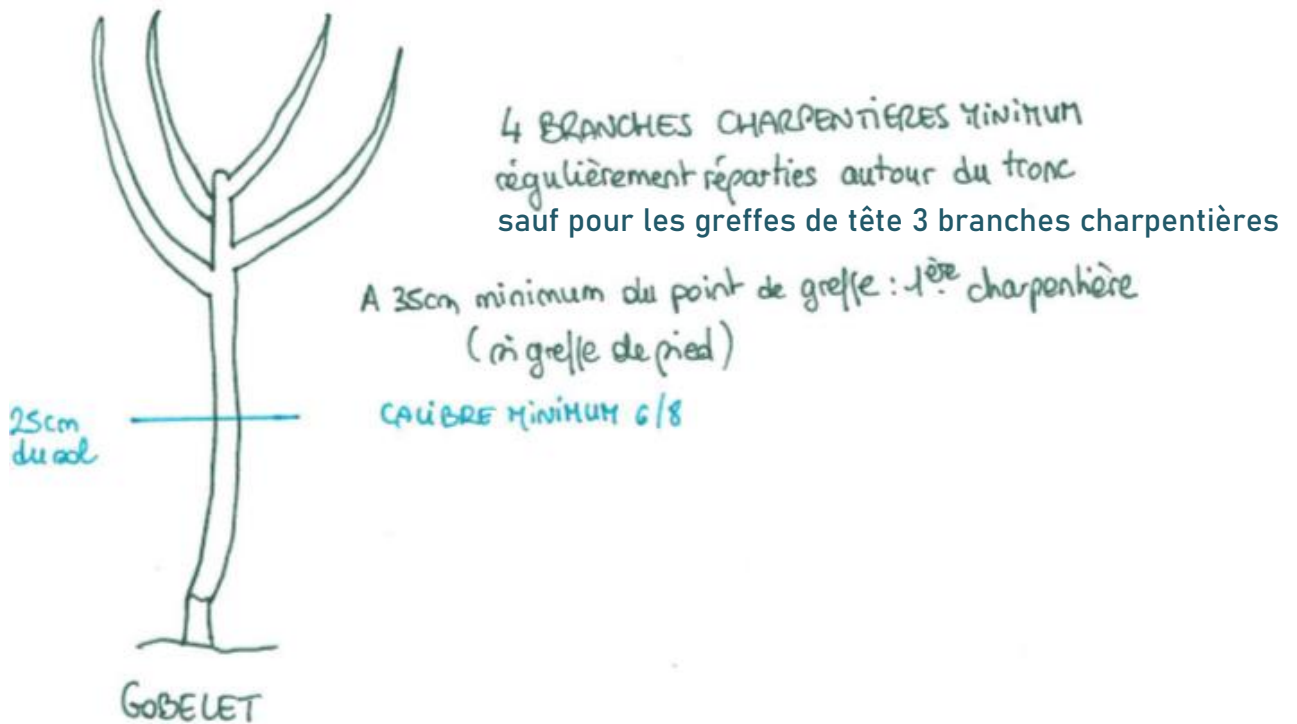 4 BRANCHES CHARPENTIERES MINIMUM
régulièrement réparties autour du tronc
sauf pour les greffes de tête 3 branches charpentières
A 35cm minimum du point de greffe : 1ère charpentière
(si greffe de pied)
25cm
du sol
CALIBRE MINIMUM 6/8
GOBELET